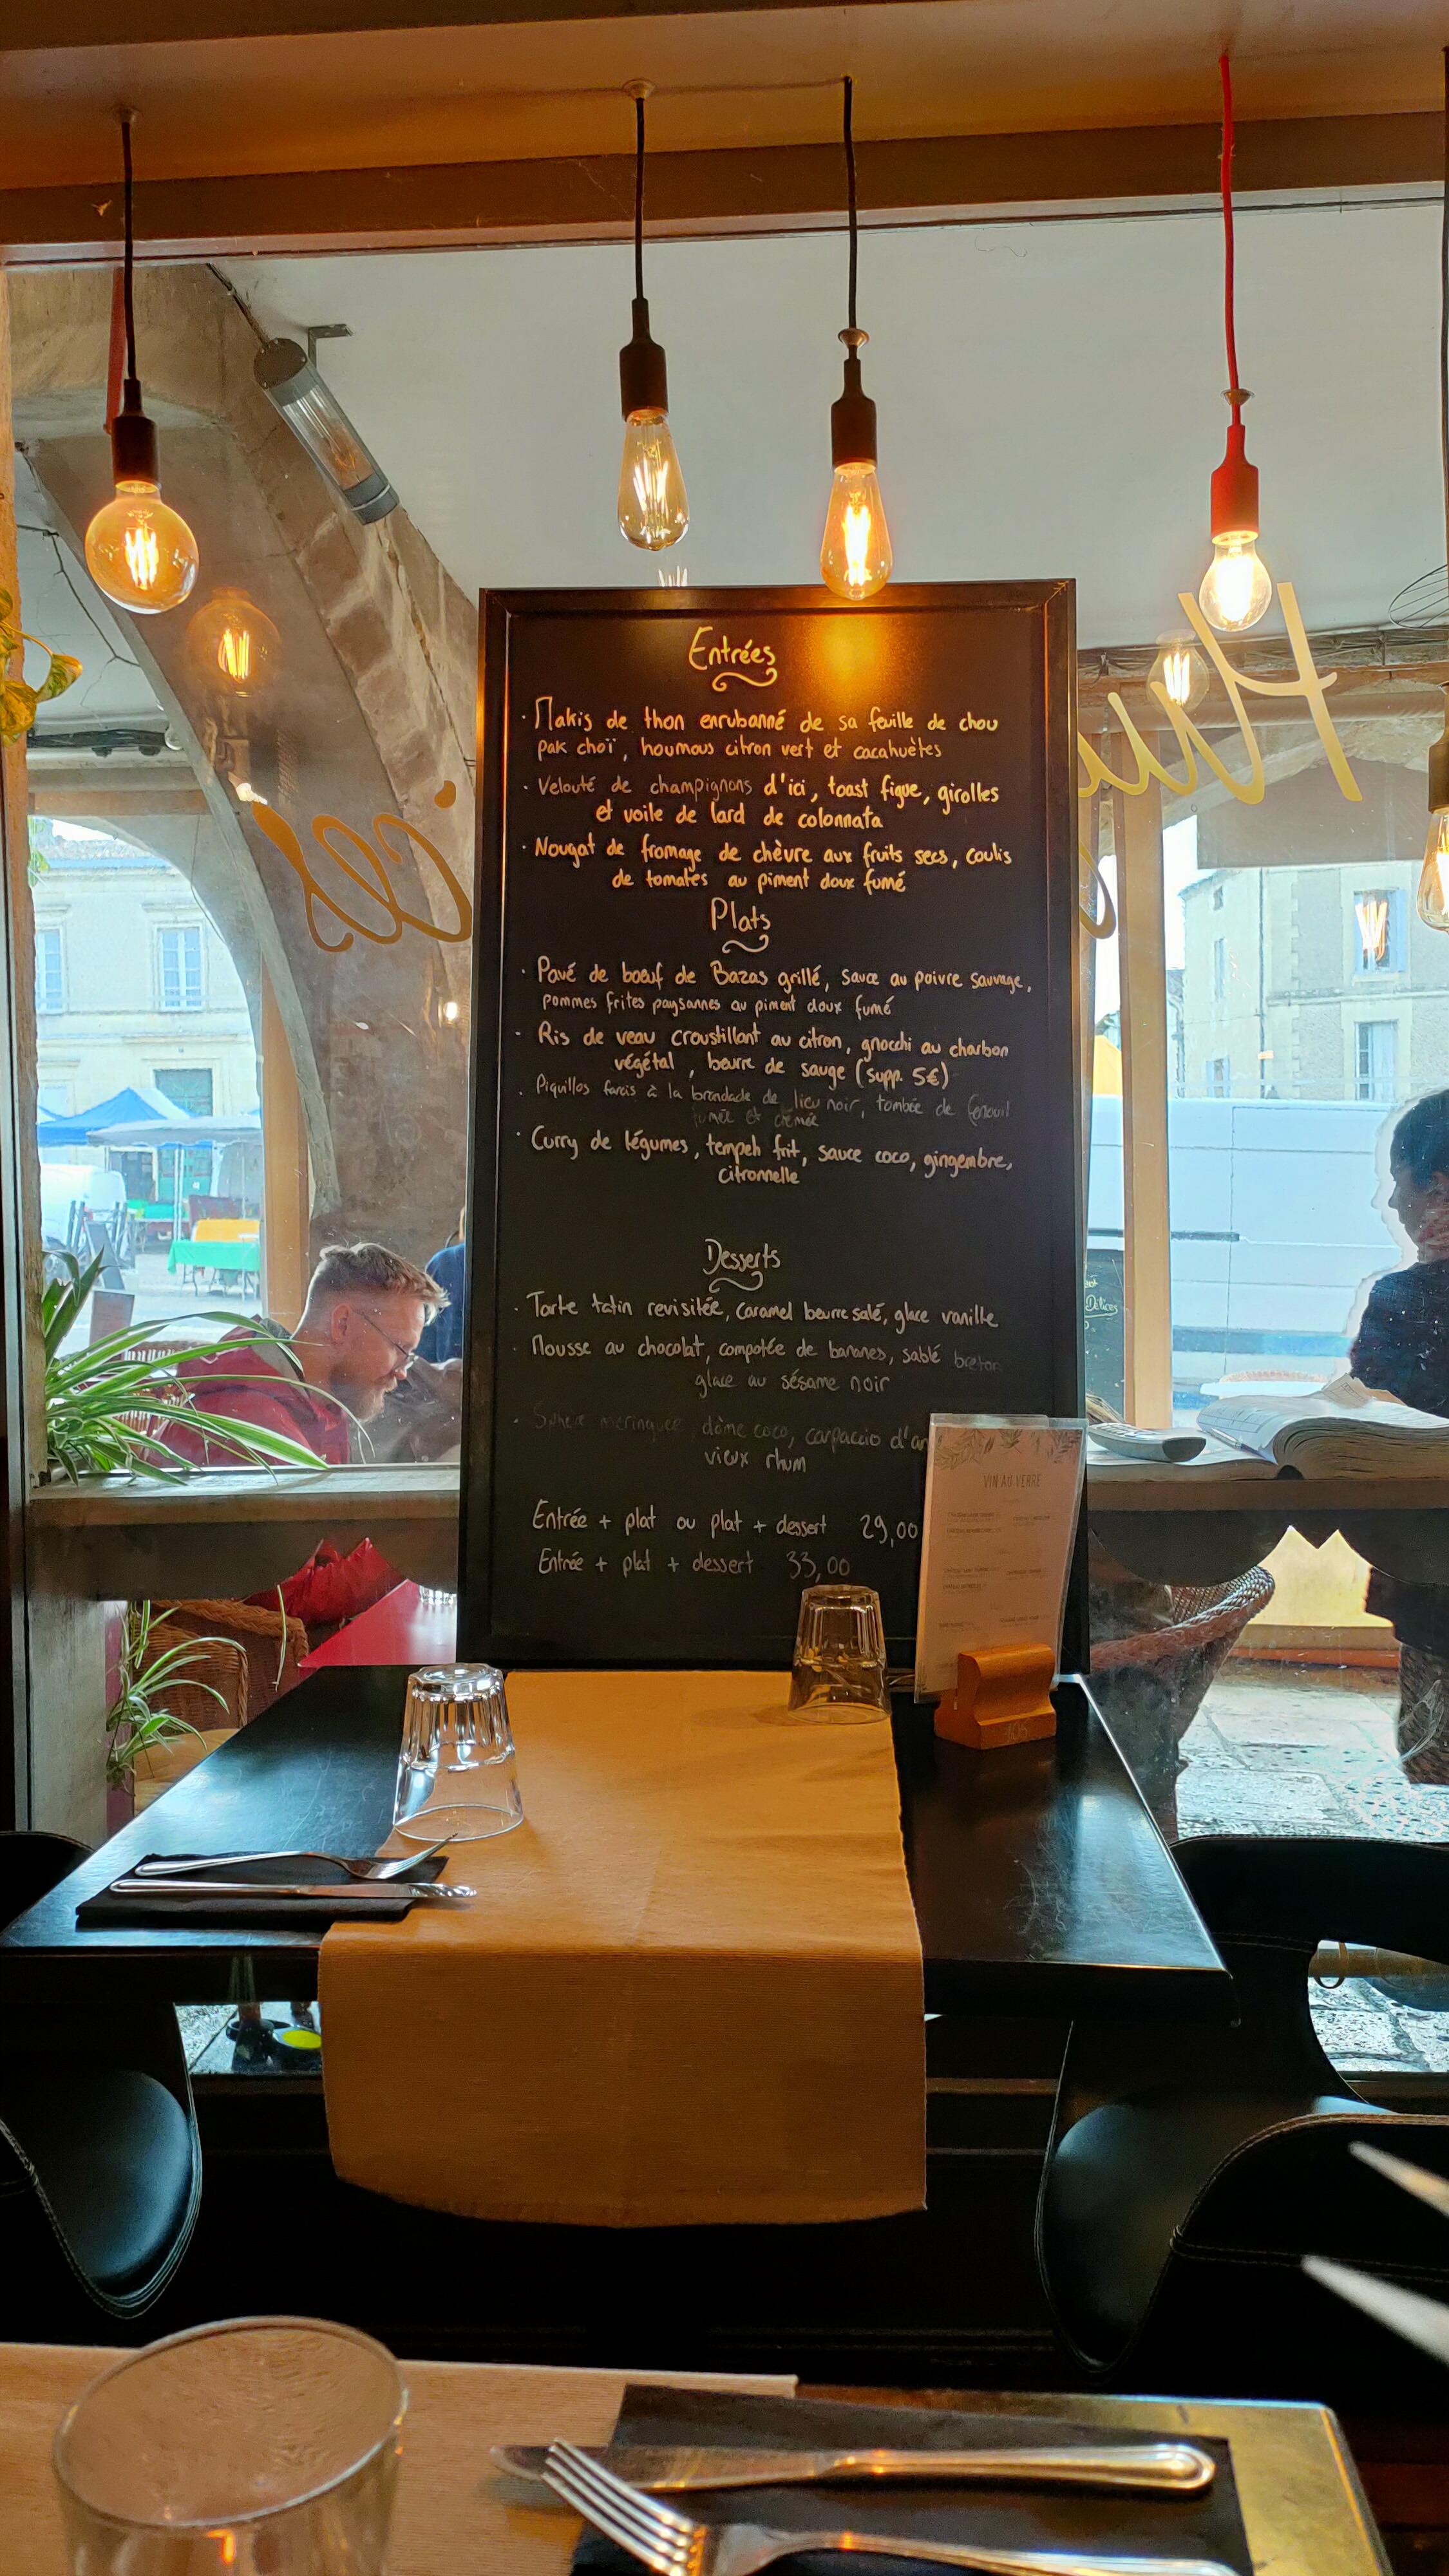 Entrées
· Makis de thon enrubanné de sa feuille de chou
pak choï, houmous citron vert et cacahuètes
· Velouté de champignons d'ici, toast figue, girolles
et voile de lard de colonnata
· Nougat de fromage de chèvre aux fruits secs, coulis
de tomates au piment doux fumé
Plats
· Pavé de boeuf de Bazas grillé, sauce au poivre sauvage,
pommes frites paysannes au piment doux fumé
· Ris de veau croustillant au citron, gnocchi au charbon
végétal, beurre de sauge (supp. 5€)
· Piquillos farcis à la brandade de lieu noir, tombée de fenouil
fumée et crémée
· Curry de légumes, tempeh frit, sauce coco, gingembre,
citronnelle
Desserts
· Tarte tatin revisitée, caramel beurre salé, glace vanille
· Mousse au chocolat, compotée de bananes, sablé breton
glace au sésame noir
· meringuée dôme coco, carpaccio d'an
vieux rhum
Entrée + plat ou plat + dessert 29,00
Entrée + plat + dessert 33,00
VIN AU VERRE
Délices